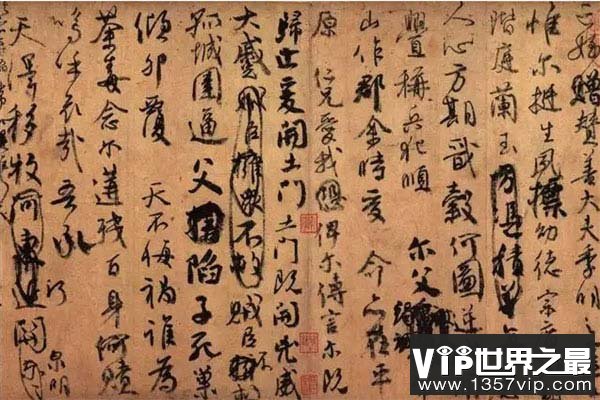 姪贈贊善大夫季明
惟爾挺生夙標幼德宗
階庭蘭玉方憑積善
人心方期戩穀何圖逆
釁稱兵犯順 爾父
山作郡余時受命亦在平
原 仁兄愛我俾爾傳言爾既
歸止爰開土門土門既開凶威
大蹙賊臣擁衆不救賊臣不
孤城圍逼父陷子死巢
傾卵覆 天不悔禍誰為
荼毒念爾遘殘百身何贖
嗚呼哀哉 吾承
天澤移牧河東近
泉明
VIP世界之最
www.1357vip.com